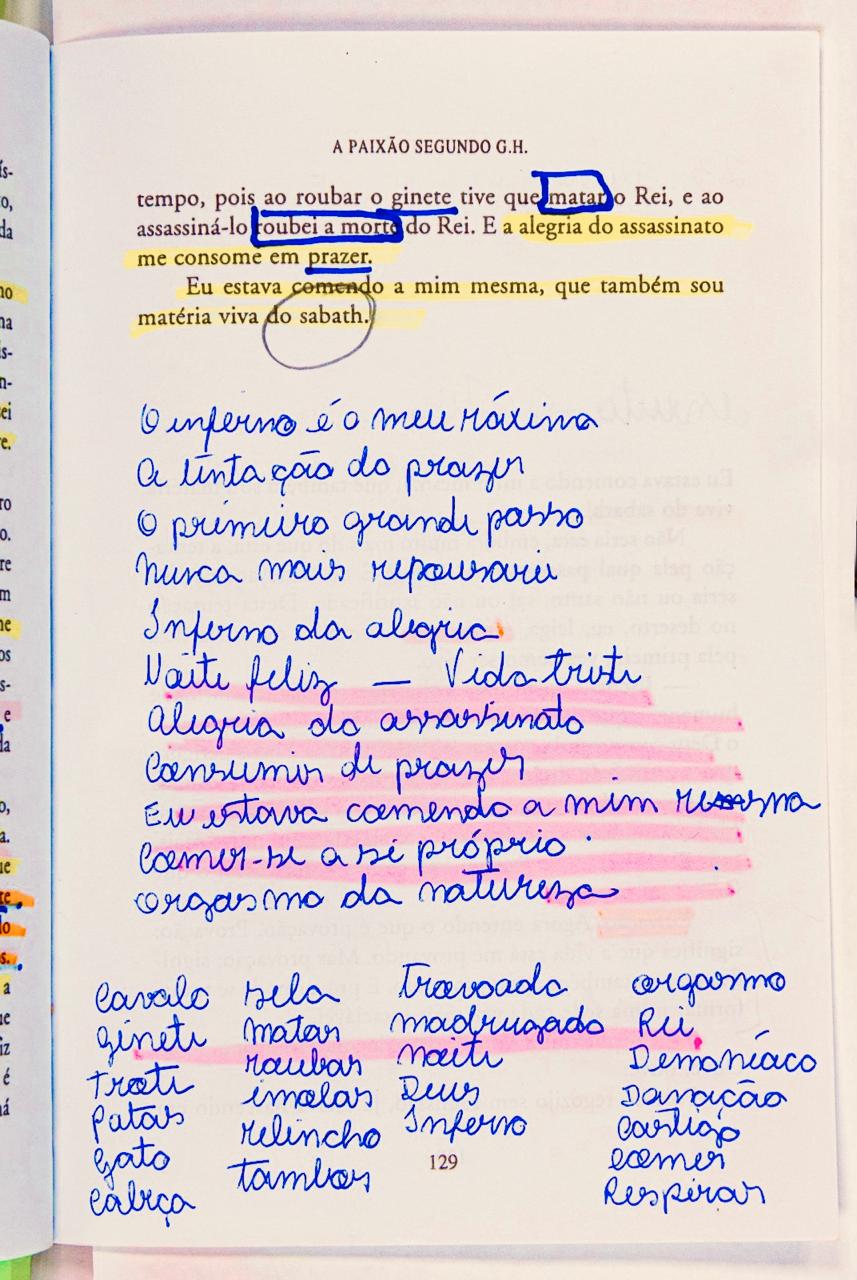 A PAIXÃO SEGUNDO G.H.
tempo, pois ao roubar o ginete tive que matar o Rei, e ao
assassiná-lo roubei a morte do Rei. E a alegria do assassinato
me consome em prazer.
Eu estava comendo a mim mesma, que também sou
matéria viva do sabath.
O inferno é o meu máximo
A tentação do prazer
O primeiro grande passo
Nunca mais repousaria
Inferno da alegria
Noite feliz — Vida triste
Alegria do assassinato
Consumir de prazer
Eu estava comendo a mim mesma
Comer-se a si próprio
orgasmo da natureza
Cavalo sela trovoada orgasmo
Ginete matar madrugada Rei
Trote roubar noite Demoníaco
Patas imolar Deus Danação
Gato relincho Inferno Castigo
Cabeça tambor comer
Respirar
129